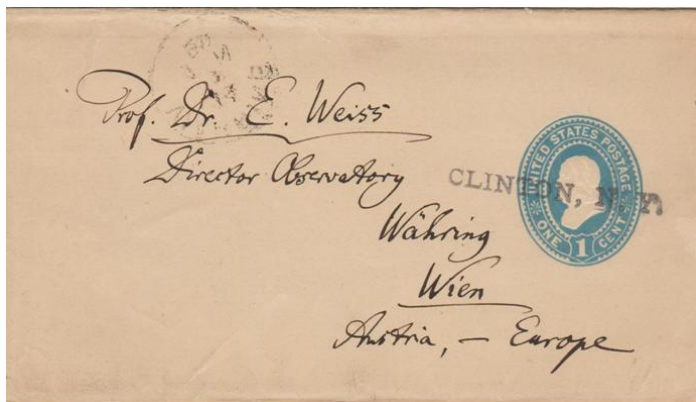 Prof. Dr. E. Weiss
Director Observatory
Währing
Wien
Austria, — Europe
CLINTON, N.Y.
UNITED STATES POSTAGE
ONE 1 CENT